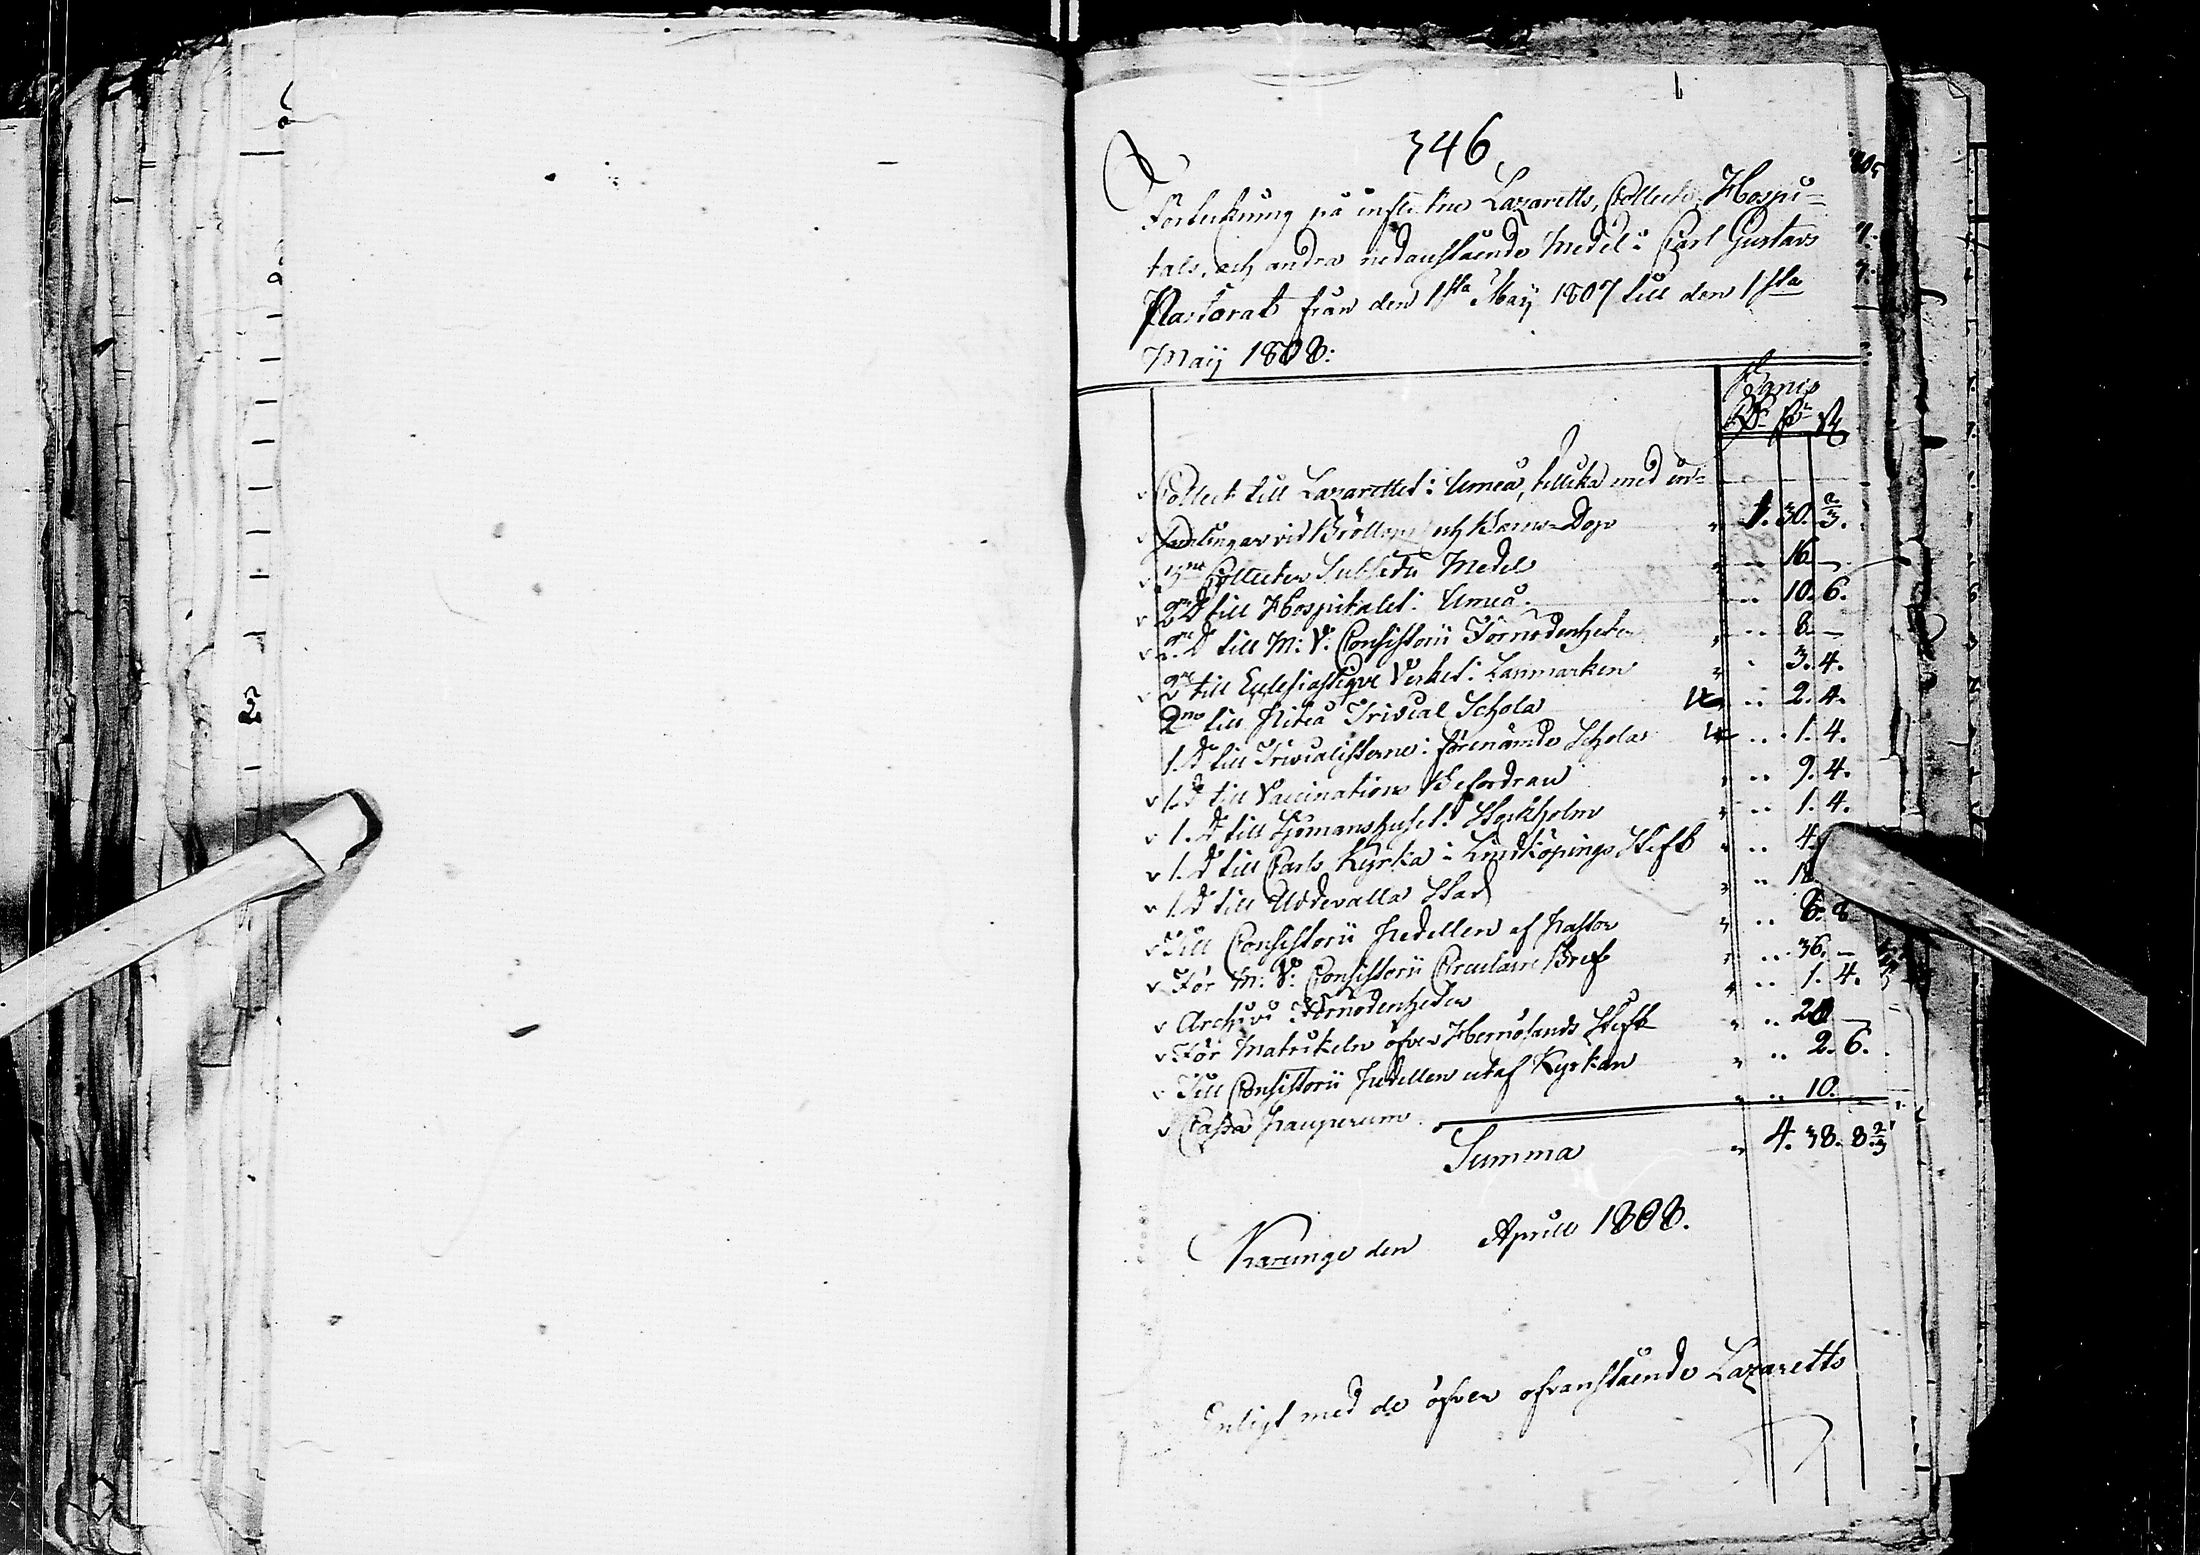 346
Förteckning på influtne Lazaretts, Collect, Hospi-
tals, och andra nedanstående Medel i Carl Gustavs
Pastorat från den 1sta Maij 1807 till den 1sta
Maij 1808:
Banco
Rd s r
Collect till Lazarettet i Umeå, tillika med in-
samlingar vid Bröllop och Barns-Dop 1. 30. 2/3.
Collecter Subsidii Medel 16 —
2ne Do till Hospitalet i Umeå 10. 6.
2ne Do till M: V: Consistorii Förnödenheter 8. —
2ne till Eclesiastique Verket i Lapmarken 3. 4.
2ne till Piteå Trivial Schola 2. 4.
1. Do till Trivialisterne i förenämde Schola 1. 4.
1. Do till Vaccinations Befordran 9. 4.
1. Do till Sjömanshuset i Stockholm 1. 4.
1. Do till Carls Kyrka i Lindköpings Stift 4.
1. Do till Uddevalla Stad
Till Consistorii Pedellen af Pastor 6. 8
För M: V: Consistorii Circulaire Bref 36. —
Archivi Förnödenheter 1. 4.
För Matrikeln öfver Hernösands Stift 20 —
Till Consistorii Pedellen utaf Kyrkan 2. 6.
Cassa Pauperum 10. —
Summa 4. 38. 8 2/3
Karungi den Aprill 1808.
Enligt med de öfver ofvanstående Lazaretts
2